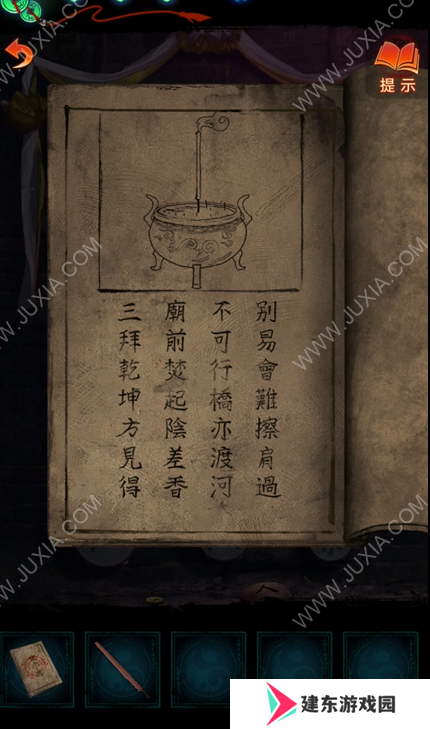 WWW.JUXIA.COM
WWW.JUXIA.COM
提示
别易會難擦肩過
不可行橋亦渡河
廟前焚起陰差香
三拜乾坤方見得
WWW.JUXIA.COM
WWW.JUXIA.COM
WWW.JUXIA.COM
WWW.JUXIA.COM
建东游戏园